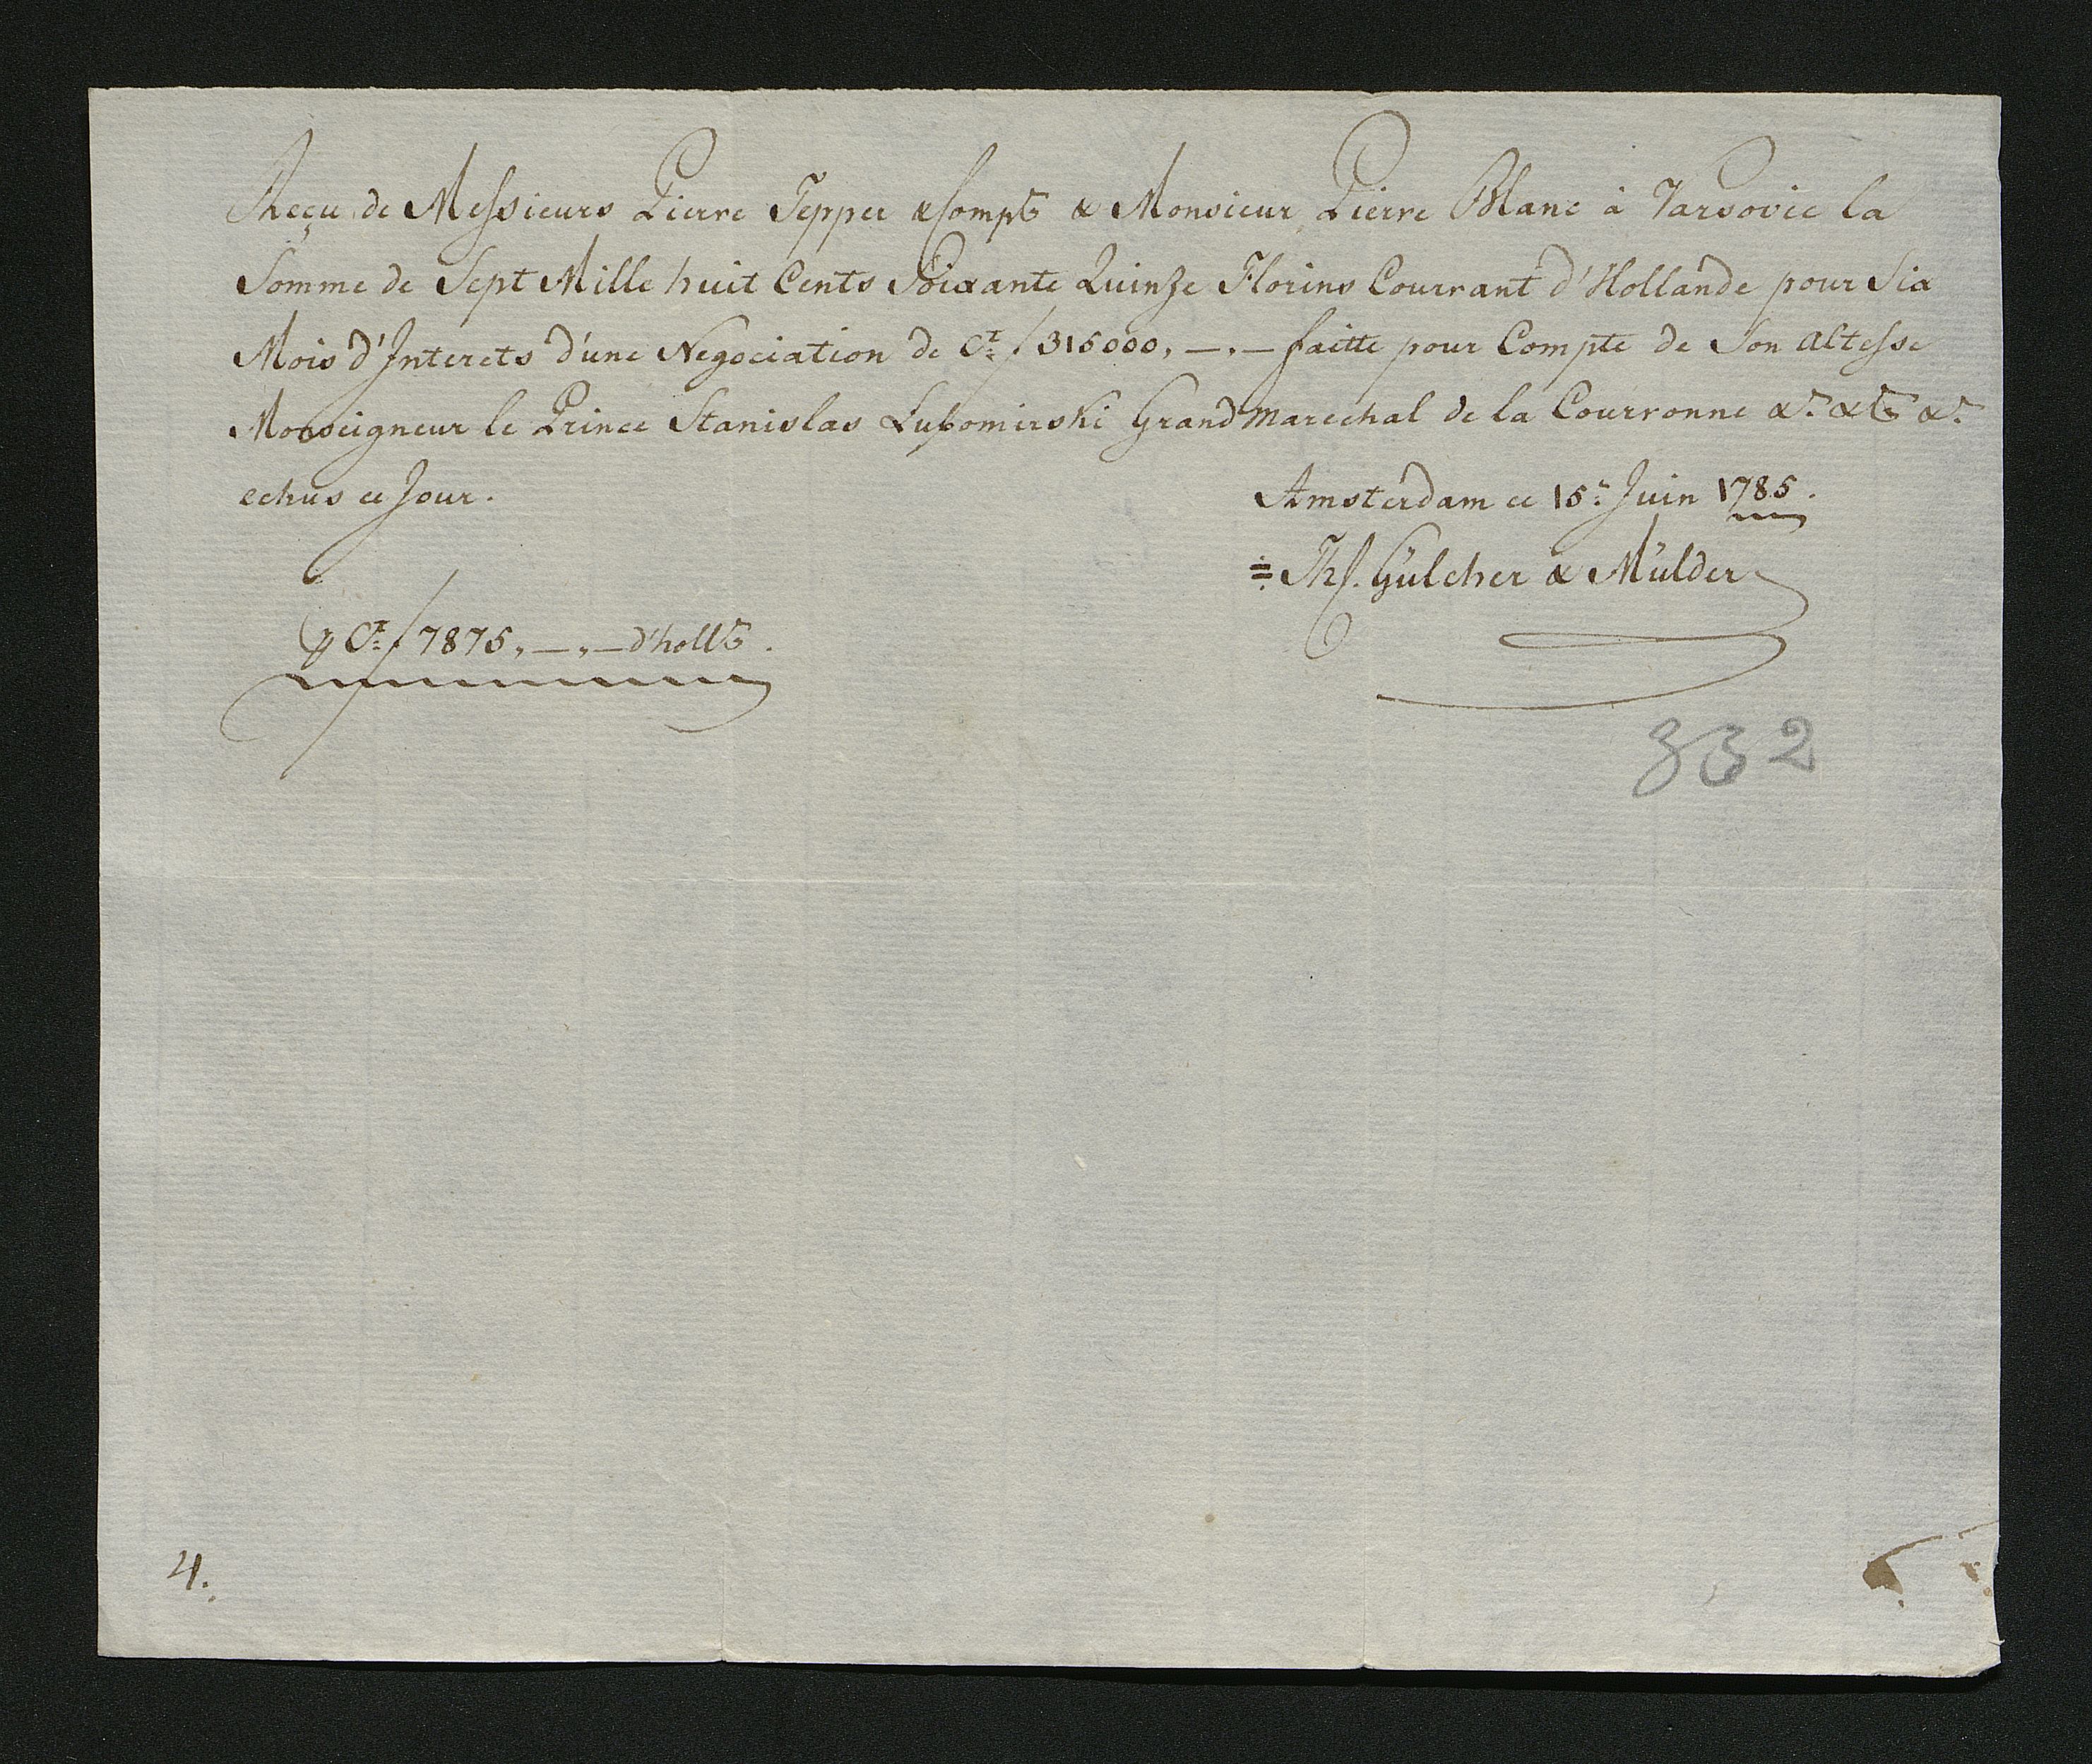 Reçu de Messieurs Pierre Tepper & Compe & Monsieur Pierre Blanc à Varsovie la
Somme de Sept Mille huit Cents Soixante Quinze Florins Courrant d'Hollande pour Six
Mois d'Interets d'une Negociation de Ct. f 315000,—,— faitte pour Compte de Son Altesse
Monseigneur le Prince Stanislas Lubomirski Grand Marechal de la Courronne &c. &c. &c.
echus ce Jour.
Amsterdam ce 15e Juin 1785.
Ths. Gülcher & Mülder
Ct. f 7875,—,— d'holle.
832
4.